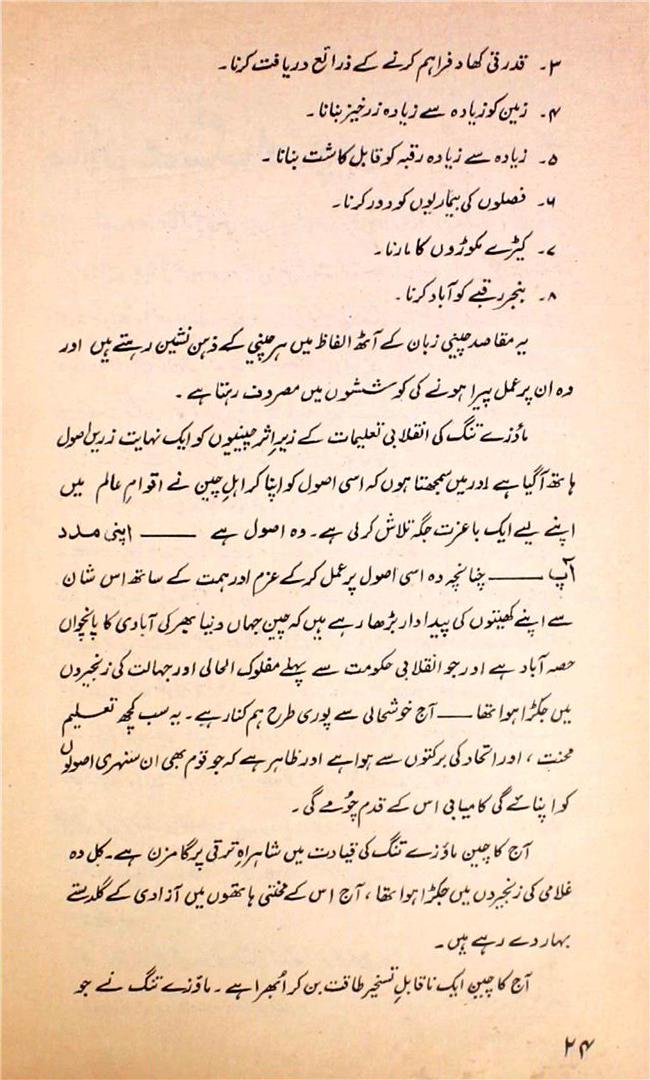 ۳۔ قدرتی کھاد فراہم کرنے کے ذرائع دریافت کرنا۔
۴۔ زمین کو زیادہ سے زیادہ زرخیز بنانا۔
۵۔ زیادہ سے زیادہ رقبہ کو قابل کاشت بنانا۔
۶۔ فصلوں کی بیماریوں کو دور کرنا۔
۷۔ کیڑے مکوڑوں کا مارنا۔
۸۔ بنجر رقبے کو آباد کرنا۔
یہ مقاصد چینی زبان کے آٹھ الفاظ میں ہر چینی کے ذہن نشین رہتے ہیں اور
وہ ان پر عمل پیرا ہونے کی کوششوں میں مصروف رہتا ہے۔
ماؤزے تنگ کی انقلابی تعلیمات کے زیرِ اثر چینیوں کو ایک نہایت زریں اصول
ہاتھ آگیا ہے اور میں سمجھتا ہوں کہ اسی اصول کو اپنا کر اہلِ چین نے اقوامِ عالم میں
اپنے لیے ایک باعزت جگہ تلاش کرلی ہے۔ وہ اصول ہے ——— اپنی مدد
آپ ——— چنانچہ وہ اسی اصول پر عمل کرکے عزم اور ہمت کے ساتھ اس شان
سے اپنے کھیتوں کی پیداوار بڑھا رہے ہیں کہ چین جہاں دنیا بھر کی آبادی کا پانچواں
حصہ آباد ہے اور جو انقلابی حکومت سے پہلے مفلوک الحالی اور جہالت کی زنجیروں
میں جکڑا ہوا تھا ——— آج خوشحالی سے پوری طرح ہم کنار ہے۔ یہ سب کچھ تعلیم
محنت، اور اتحاد کی برکتوں سے ہوا ہے اور ظاہر ہے کہ جو قوم بھی ان سنہری اصولوں
کو اپنائے گی کامیابی اس کے قدم چُومے گی۔
آج کا چین ماؤزے تنگ کی قیادت میں شاہراہِ ترقی پر گامزن ہے۔ کل وہ
غلامی کی زنجیروں میں جکڑا ہوا تھا، آج اس کے محنتی ہاتھوں میں آزادی کے گلدستے
بہار دے رہے ہیں۔
آج کا چین ایک ناقابلِ تسخیر طاقت بن کر اُبھرا ہے۔ ماؤزے تنگ نے جو
۲۴